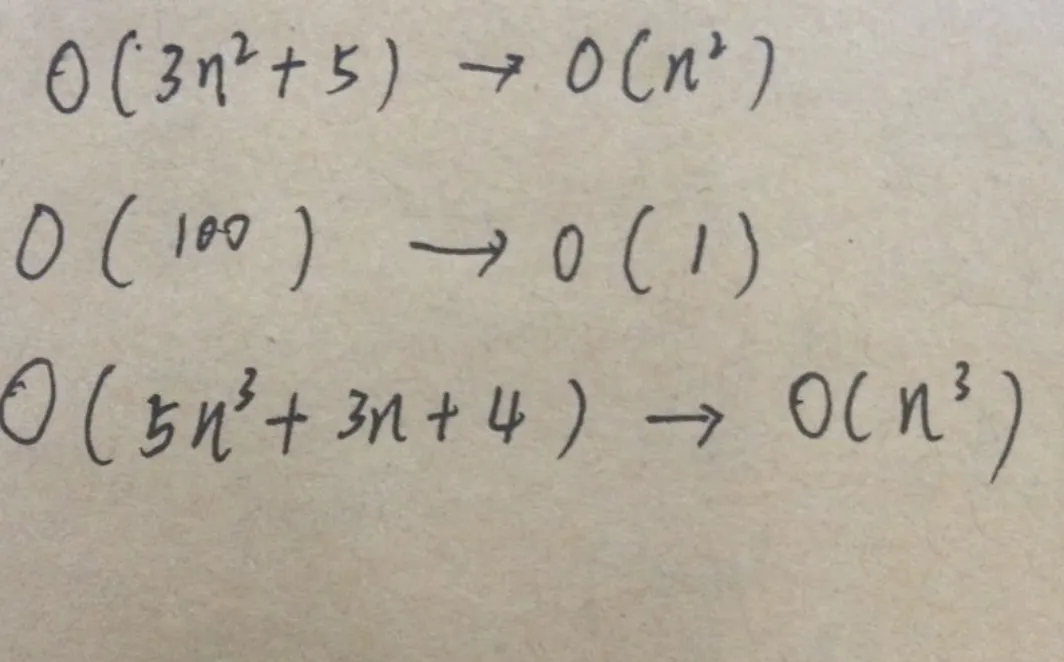 O(3n²+5) → O(n²)
O(100) → O(1)
O(5n³+3n+4) → O(n³)